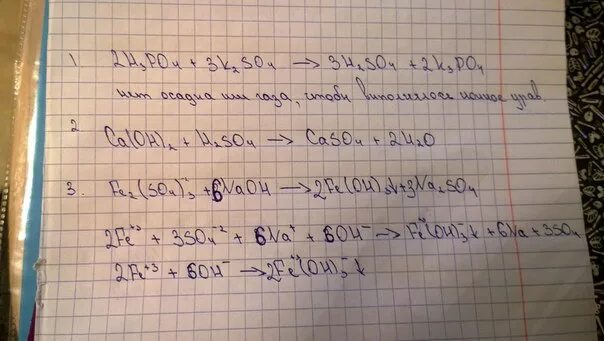 1. 2H₃PO₄ + 3K₂SO₄ → 3H₂SO₄ + 2K₃PO₄
нет осадка или газа, чтобы выполнялось ионное урав.
2 Ca(OH)₂ + H₂SO₄ → CaSO₄ + 2H₂O
3. Fe₂(SO₄)₃ + 6NaOH → 2Fe(OH)₃↓ + 3Na₂SO₄
2Fe⁺³ + 3SO₄⁻² + 6Na⁺ + 6OH⁻ → Fe⁺³(OH)₃⁻↓ + 6Na + 3SO₄
2Fe⁺³ + 6OH⁻ → 2Fe⁺³(OH)₃⁻↓